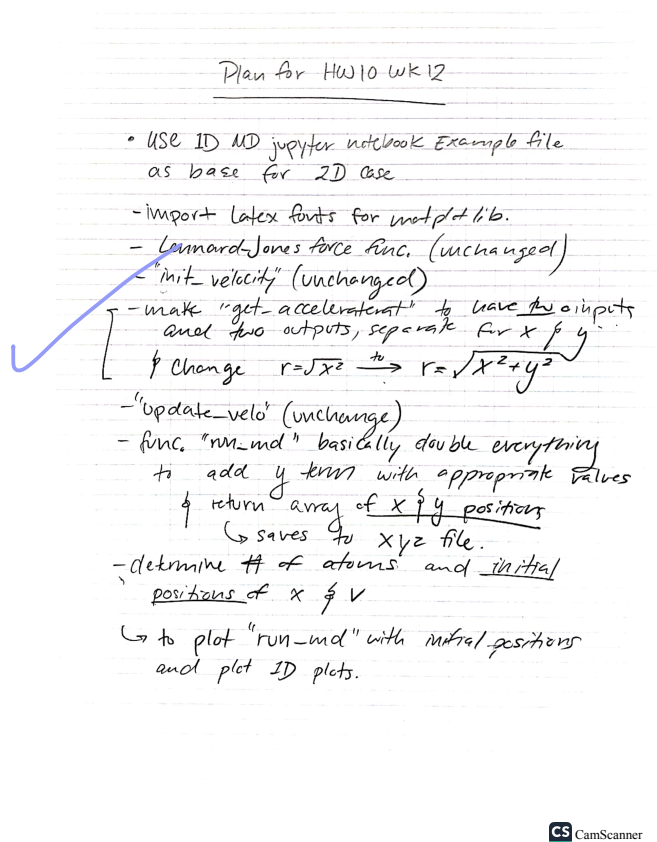 Plan for HW10 WK12
• USE 1D MD jupyter notebook Example file
as base for 2D case
- import Latex fonts for matplotlib.
- Lennard-Jones force func. (unchanged)
- "init_velocity" (unchanged)
- make "get_accelerat" to have two inputs
and two outputs, separate for x & y
& Change r=√x² to → r=√x²+y²
- "update_velo" (unchange)
- func. "run_md" basically double everything
to add y term with appropriate values
& return array of x & y positions
↳ saves to xyz file.
- determine # of atoms and initial
positions of x & v
↳ to plot "run_md" with initial positions
and plot 1D plots.
CS CamScanner